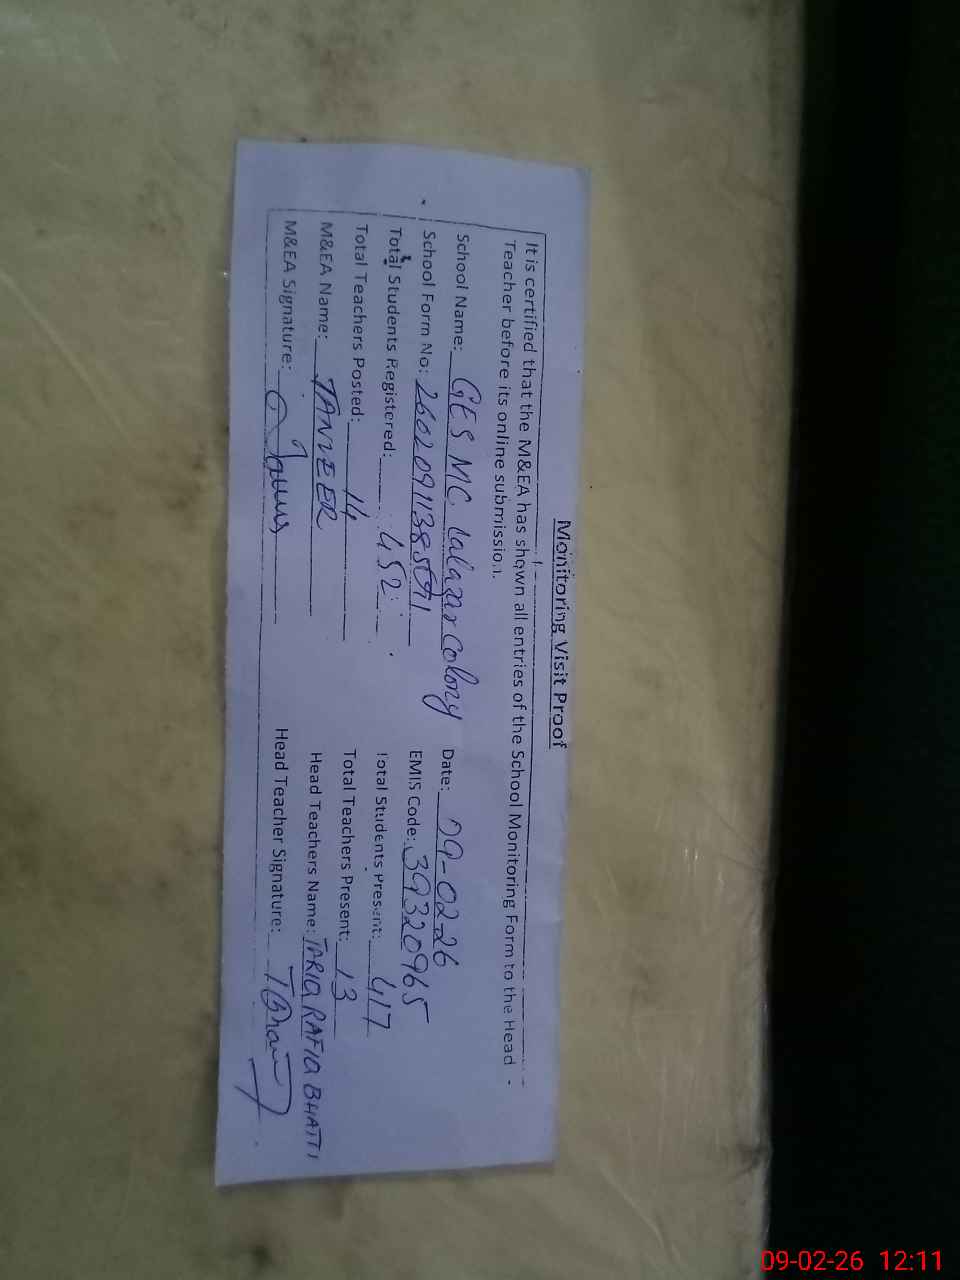 Monitoring Visit Proof
It is certified that the M&EA has shown all entries of the School Monitoring Form to the Head
Teacher before its online submission.
School Name: GES MC Lalazar Colony Date: 09-02-26
School Form No: EMIS Code: 39320965
Total Students Registered: 452 Total Students Present: 417
Total Teachers Posted: 14 Total Teachers Present: 13
M&EA Name: TANVEER Head Teachers Name: TARIQ RAFIQ BHATTI
M&EA Signature: Head Teacher Signature:
09-02-26 12:11